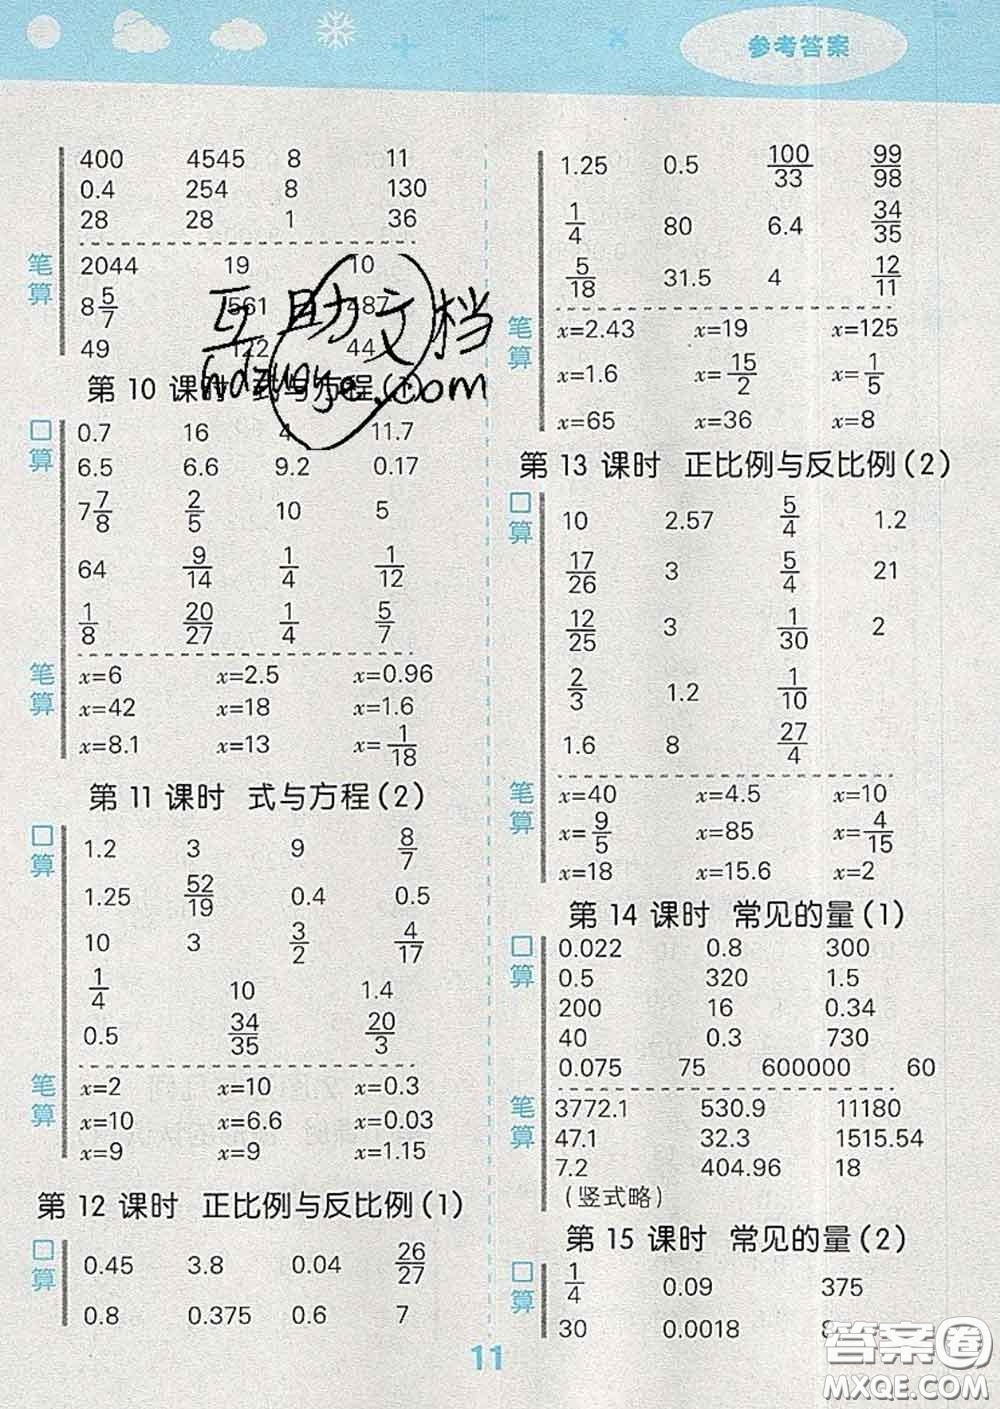 参考答案
400 4545 8 11
0.4 254 8 130
28 28 1 36
笔算
2044 19 10
8 5/7 561 187
49 122 44
互助文档
hdzuoye.com
第 10 课时 式与方程(1)
口算
0.7 16 4 11.7
6.5 6.6 9.2 0.17
7 7/8 2/5 10 5
64 9/14 1/4 1/12
1/8 20/27 1/4 5/7
笔算
x=6 x=2.5 x=0.96
x=42 x=18 x=1.6
x=8.1 x=13 x=1/18
第 11 课时 式与方程(2)
口算
1.2 3 9 8/7
1.25 52/19 0.4 0.5
10 3 3/2 4/17
1/4 10 1.4
0.5 34/35 20/3
笔算
x=2 x=10 x=0.3
x=10 x=6.6 x=0.03
x=9 x=9 x=1.15
第 12 课时 正比例与反比例(1)
口算
0.45 3.8 0.04 26/27
0.8 0.375 0.6 7
1.25 0.5 100/33 99/98
1/4 80 6.4 34/35
5/18 31.5 4 12/11
笔算
x=2.43 x=19 x=125
x=1.6 x=15/2 x=1/5
x=65 x=36 x=8
第 13 课时 正比例与反比例(2)
口算
10 2.57 5/4 1.2
17/26 3 5/4 21
12/25 3 1/30 2
2/3 1.2 1/10
1.6 8 27/4
笔算
x=40 x=4.5 x=10
x=9/5 x=85 x=4/15
x=18 x=15.6 x=2
第 14 课时 常见的量(1)
口算
0.022 0.8 300
0.5 320 1.5
200 16 0.34
40 0.3 730
0.075 75 600000 60
笔算
3772.1 530.9 11180
47.1 32.3 1515.54
7.2 404.96 18
(竖式略)
第 15 课时 常见的量(2)
口算
1/4 0.09 375
30 0.0018
11
答案圈
MXQE.COM